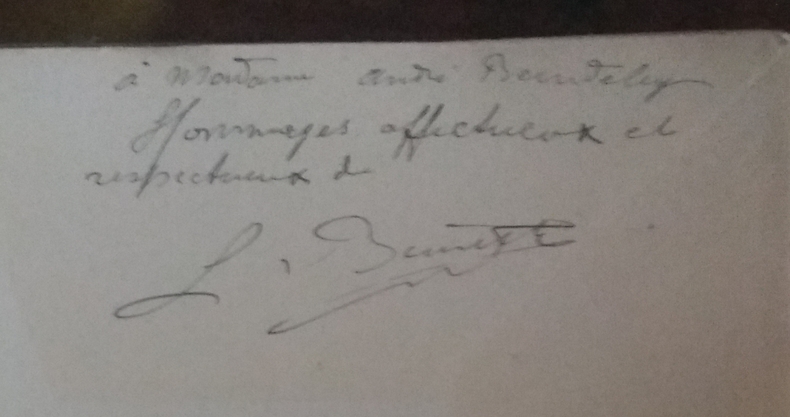 à Madame André
Hommages affectueux et
respectueux de
L. Brunett